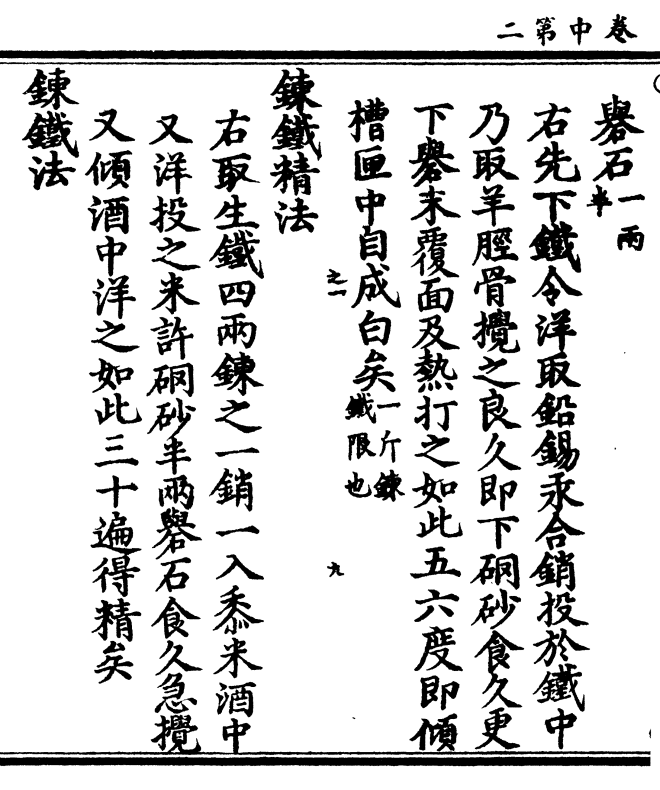 卷中第二
礜石一兩半
右先下鐵令洋取鉛錫汞合銷投於鐵中
乃取羊脛骨攪之良久即下硇砂食久更
下礜末覆面及熱打之如此五六度即傾
槽匣中自成白矣一斤鍊鐵限也
之一
九
鍊鐵精法
右取生鐵四兩鍊之一銷一入黍米酒中
又洋投之米許硇砂半兩礜石食久急攪
又傾酒中洋之如此三十遍得精矣
鍊鐵法